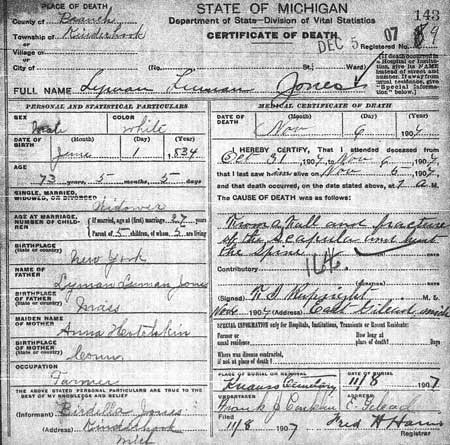 PLACE OF DEATH
County of Branch
Township of Kinderhook
or
Village of
or
City of
STATE OF MICHIGAN
Department of State—Division of Vital Statistics
CERTIFICATE OF DEATH
143
DEC 5 07
Registered No. 89
(No. St.; Ward)
If death occurred in a Hospital or Institution, give its NAME instead of street and number. If away from usual residence, give "Special Information" below.
FULL NAME Lyman Jones
PERSONAL AND STATISTICAL PARTICULARS
SEX Male
COLOR White
DATE OF BIRTH
(Month) (Day) (Year)
June 1 1834
AGE
73 years, 5 months, 5 days
SINGLE, MARRIED, WIDOWED, OR DIVORCED
Widower
AGE AT MARRIAGE, NUMBER OF CHILDREN
If married, age at (first) marriage 27 years
Parent of 5 children, of whom 5 are living
BIRTHPLACE
(State or country)
New York
NAME OF FATHER
Lyman Jones
BIRTHPLACE OF FATHER
(State or country)
Mass
MAIDEN NAME OF MOTHER
Anna Hotchkin
BIRTHPLACE OF MOTHER
(State or country)
Conn.
OCCUPATION
Farmer
THE ABOVE STATED PERSONAL PARTICULARS ARE TRUE TO THE BEST OF MY KNOWLEDGE AND BELIEF
(Informant) Jones
(Address) Kinderhook
Mich
MEDICAL CERTIFICATE OF DEATH
DATE OF DEATH
(Month) (Day) (Year)
Nov 6 1907
I HEREBY CERTIFY, That I attended deceased from
Oct 31 1907, to Nov 6, 1907
that I last saw him alive on Nov 5, 1907
and that death occurred, on the date stated above, at 7 A M.
The CAUSE OF DEATH was as follows:
From a Fall and fracture
of the Scapula and hurt
the Spine
Contributory
166.
(Signed) M. D.
Nov 1907 (Address) East Gilead, Mich
SPECIAL INFORMATION only for Hospitals, Institutions, Transients or Recent Residents:
Former or usual residence,
How long at place of death? days
Where was disease contracted, if not at place of death?
PLACE OF BURIAL OR REMOVAL
DATE OF BURIAL
Cemetery 11/8 1907
UNDERTAKER
(Address)
Frank J E. Gilead
Filed
11/8 1907
Fred H